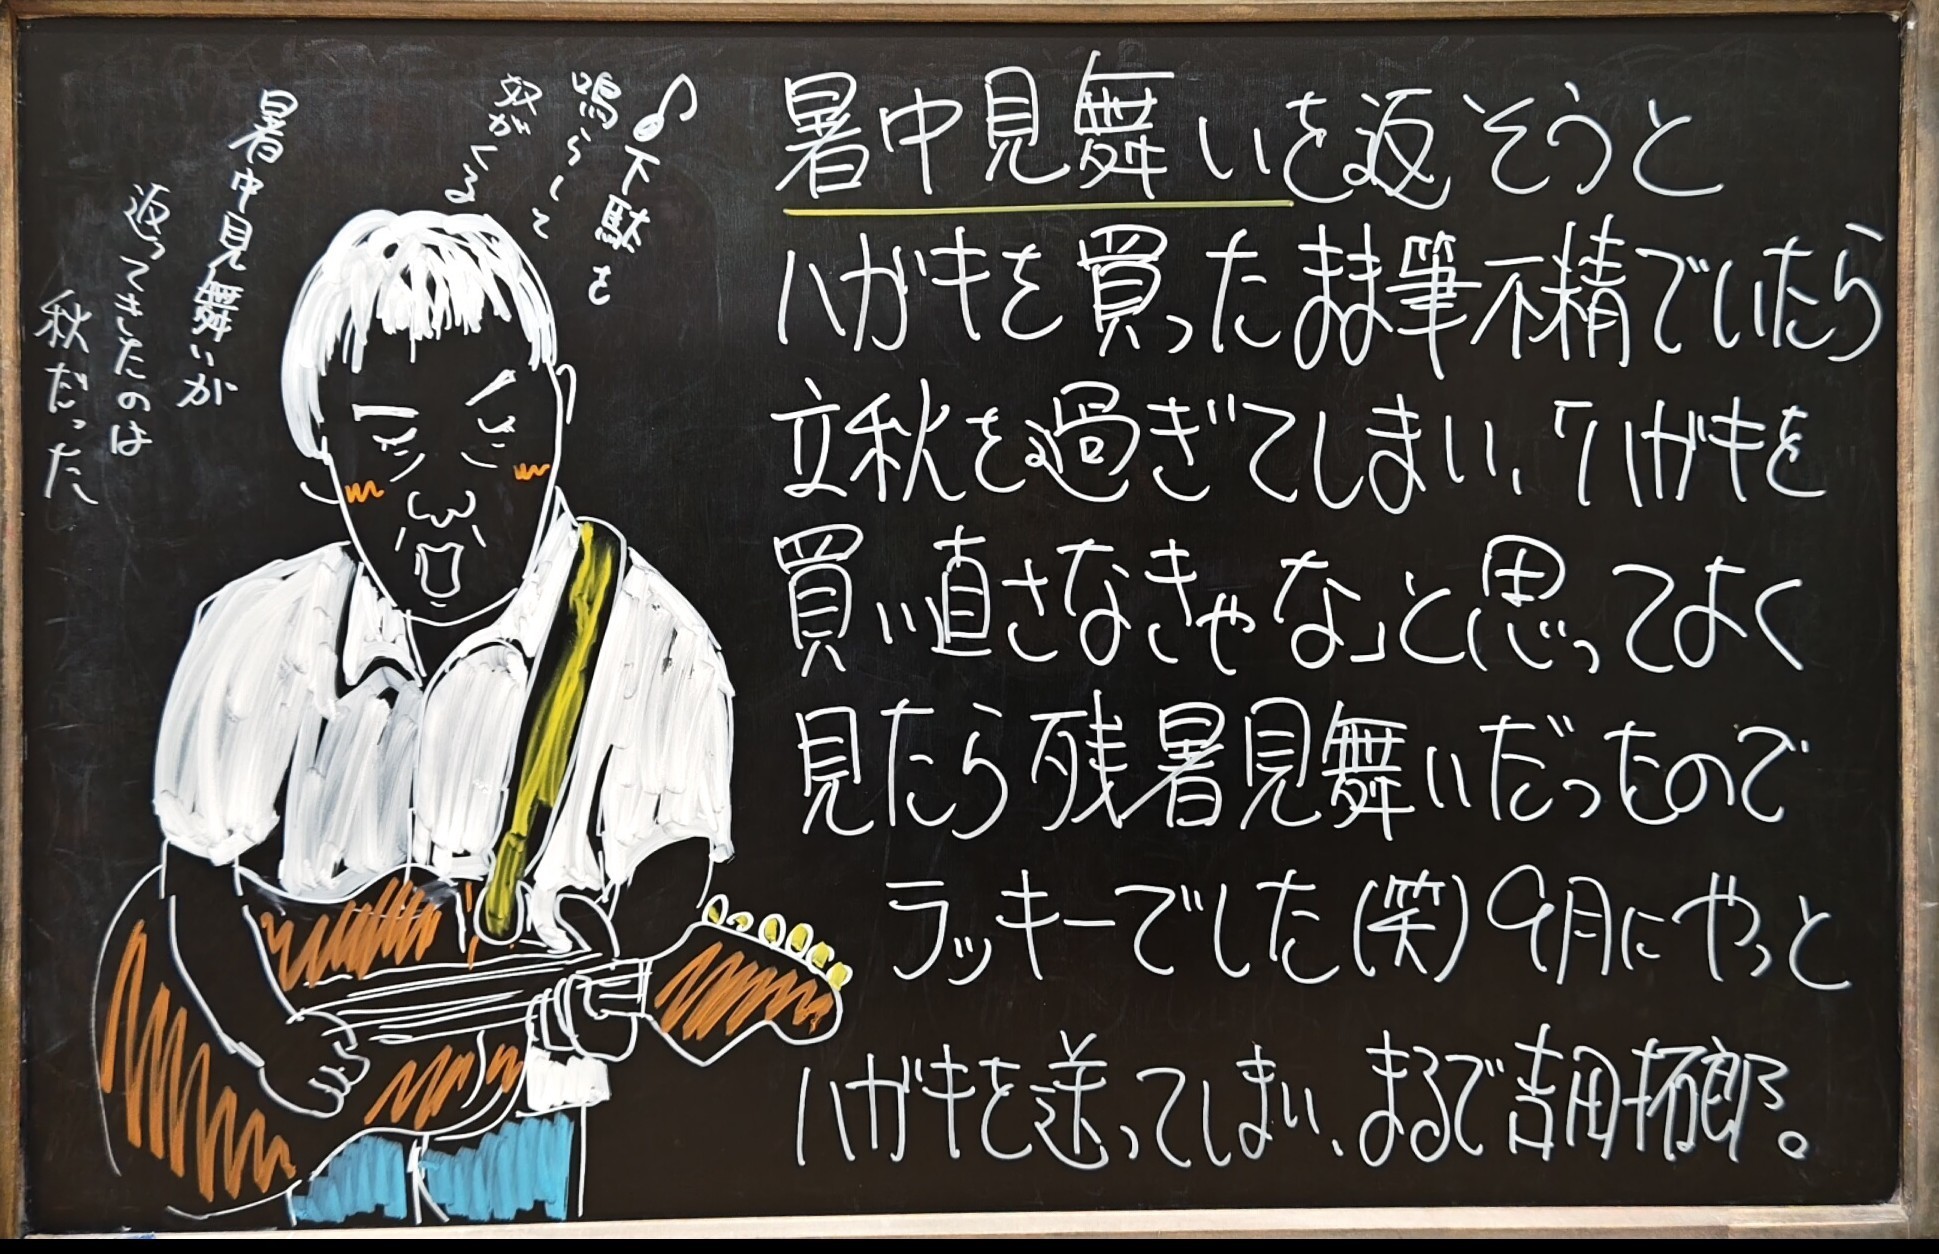 暑中見舞いを返そうと
ハガキを買ったまま筆不精でいたら
立秋を過ぎてしまい、「ハガキを
買い直さなきゃな」と思ってよく
見たら残暑見舞いだったので
ラッキーでした(笑)9月にやっと
ハガキを送ってしまい、まるで吉田拓郎。
♪下駄を
鳴らして
奴がくる
暑中見舞いが
返ってきたのは
秋だった